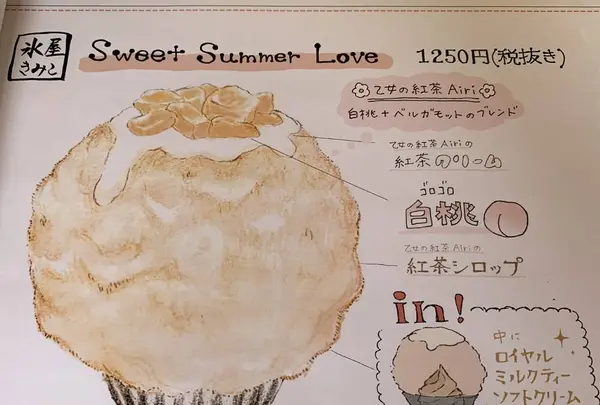 氷屋
きみこ
Sweet Summer Love 1250円(税抜き)
乙女の紅茶 Airi
白桃+ベルガモットのブレンド
乙女の紅茶Airiの
紅茶
ゴロゴロ
白桃
乙女の紅茶Airiの
紅茶シロップ
in!
中に
ロイヤル
ミルクティー
ソフトクリーム